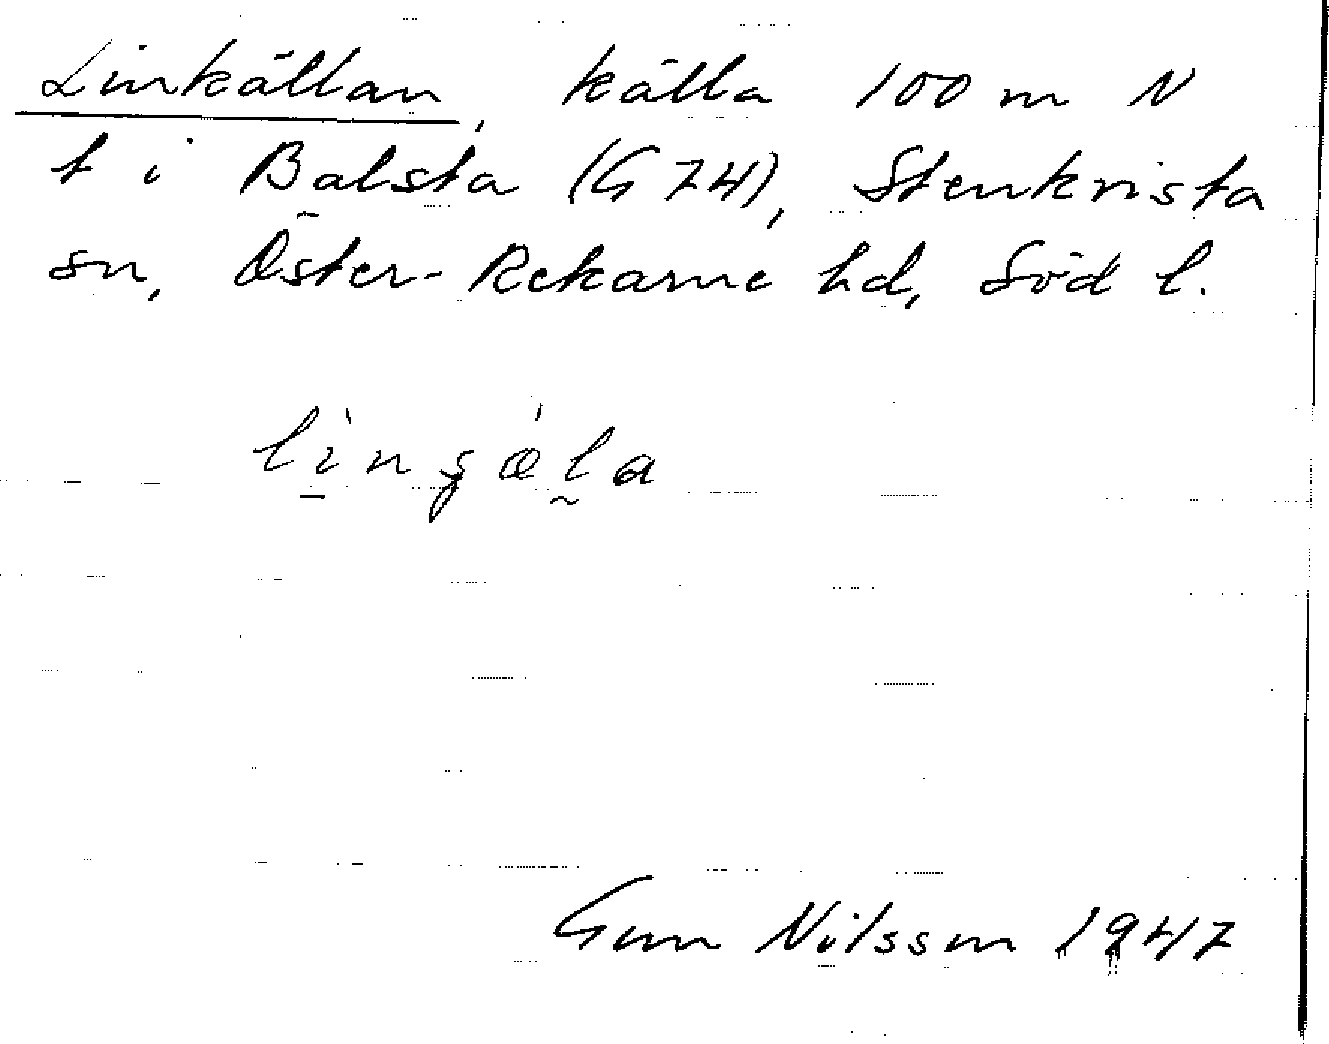 Linkällan, källa 100 m N
t i Balsta (G 74), Stenkvista
sn, Öster-Rekarne hd, Söd l.
Gun Nilsson 1947